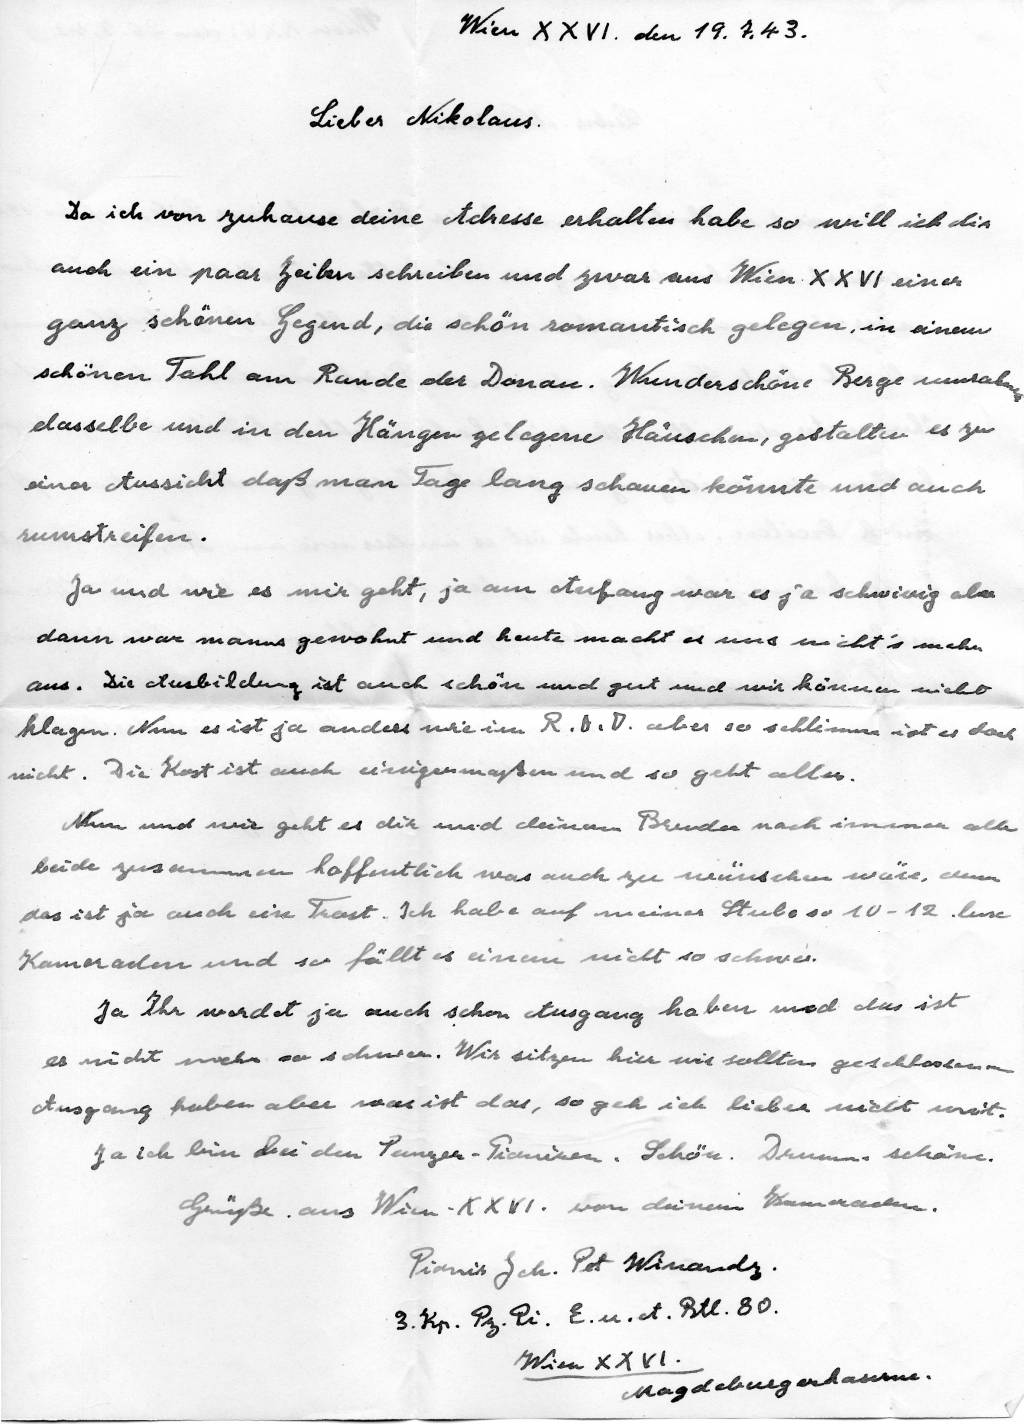 Wien XXVI. den 19.7.43.
Lieber Nikolaus.
Da ich von zuhause deine Adresse erhalten habe so will ich dir
auch ein paar Zeilen schreiben und zwar aus Wien XXVI einer
ganz schönen Gegend, die schön romantisch gelegen, in einem
schönen Tahl am Rande der Donau. Wunderschöne Berge umrahmen
dasselbe und in den Hängen gelegene Häuschen, gestalten es zu
einer Aussicht daß man Tage lang schauen könnte und auch
rumstreifen.
Ja und wie es mir geht, ja am Anfang war es ja schwirig aber
dann war manns gewohnt und heute macht es uns nicht's mehr
aus. Die Ausbildung ist auch schön und gut und wir können nicht
klagen. Nun es ist ja anders wie im R.A.D. aber so schlimm ist es doch
nicht. Die Kost ist auch einigermaßen und so geht alles.
Nun und wie geht es dir und deinem Bruder noch immer alle
beide zusammen hoffentlich was auch zu wünschen wäre, denn
das ist ja auch ein Trost. Ich habe auf meiner Stube so 10-12
Kameraden und so fällt es einem nicht so schwer.
Ja Ihr werdet ja auch schon Ausgang haben und das ist
es nicht mehr so schwer. Wir sitzen hier wir sollten geschlossenen
Ausgang haben aber was ist das, so geh ich lieber nicht mit.
Ja ich bin bei den Panzer-Pioniren. Schön. Drum. schöne.
Grüße. aus Wien-XXVI. von deinem Kameraden.
Pionir Joh. Pet Winandz.
3. Kp. Pz. Pi. E. u. A. Btl. 80.
Wien XXVI.
Magdeburgerkaserne.